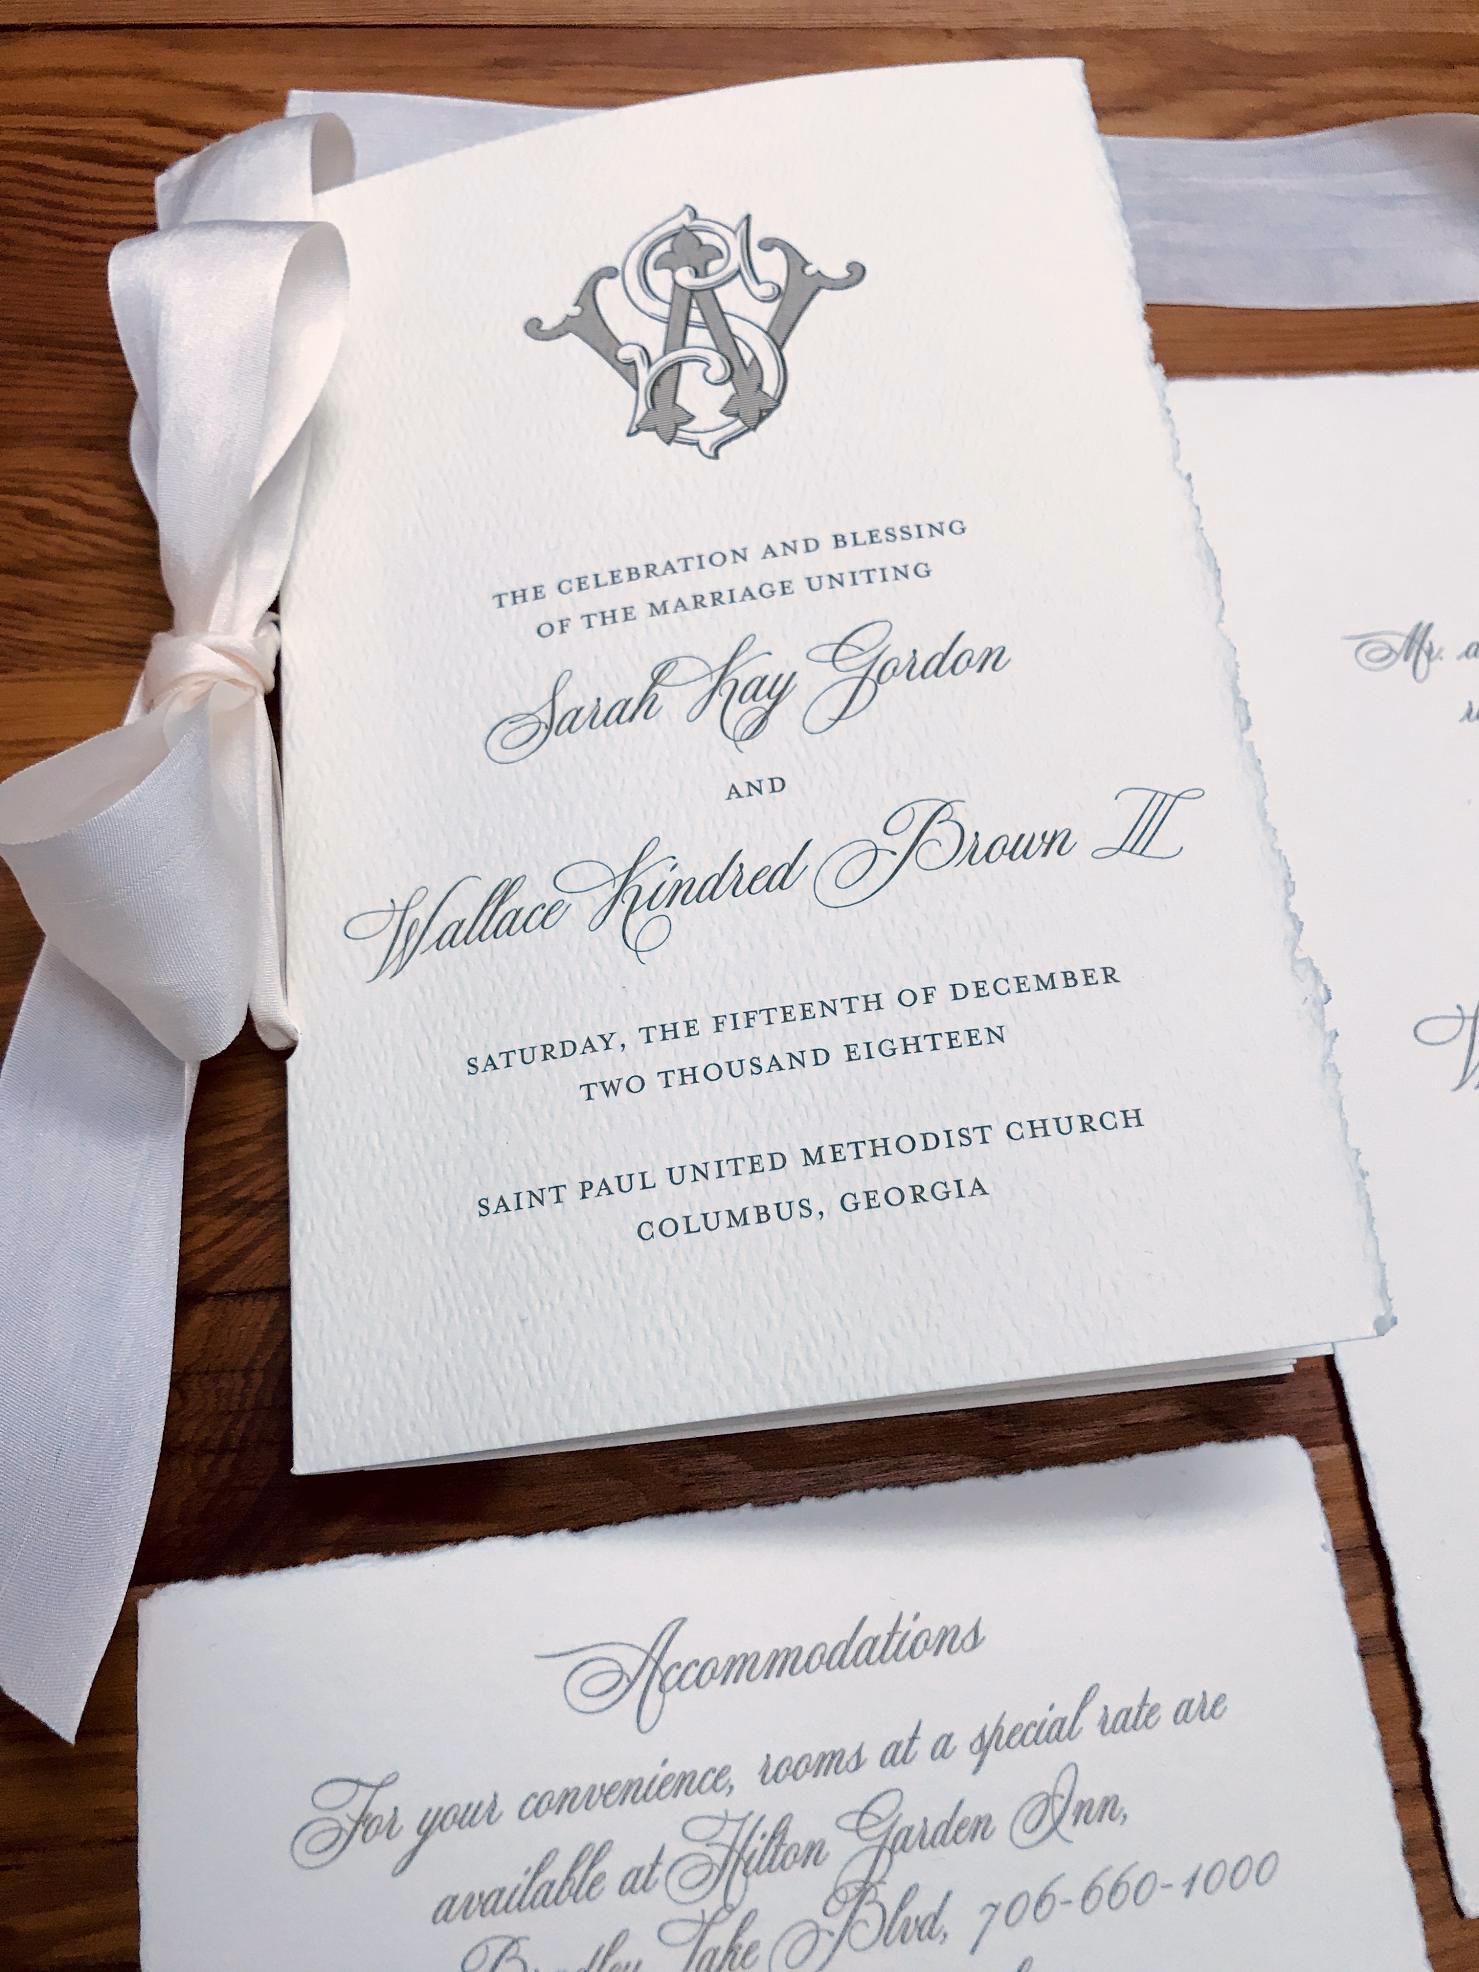 SW
THE CELEBRATION AND BLESSING
OF THE MARRIAGE UNITING
Sarah Kay Gordon
AND
Wallace Kindred Brown III
SATURDAY, THE FIFTEENTH OF DECEMBER
TWO THOUSAND EIGHTEEN
SAINT PAUL UNITED METHODIST CHURCH
COLUMBUS, GEORGIA
Mr. a
Accommodations
For your convenience, rooms at a special rate are
available at Hilton Garden Inn,
Bradley Lake Blvd, 706-660-1000